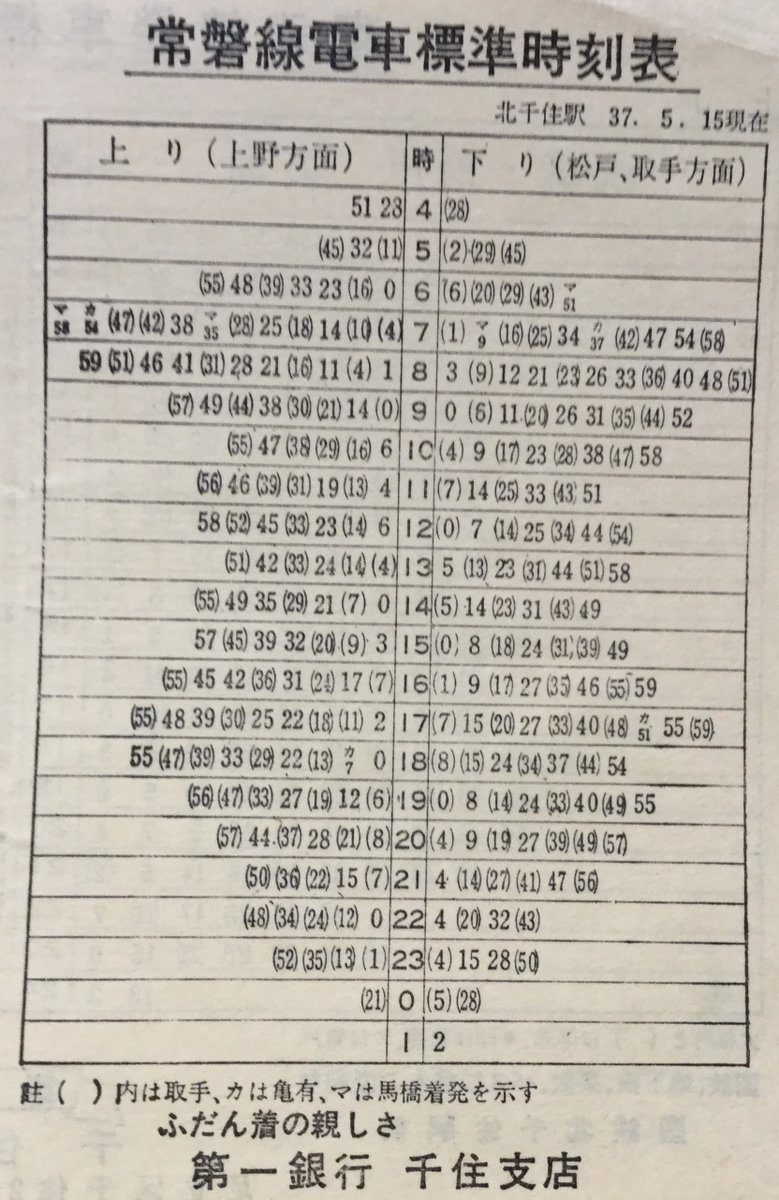 常磐線電車標準時刻表
北千住駅 37. 5. 15現在
上り(上野方面) 時 下り(松戸、取手方面)
51 23 4 (28)
(45) 32 (11) 5 (2) (29) (45)
(55) 48 (39) 33 23 (16) 0 6 (6) (20) (29) (43) マ51
マ58 カ54 (47) (42) 38 マ35 (28) 25 (18) 14 (10) (4) 7 (1) マ9 (16) (25) 34 カ37 (42) 47 54 (58)
59 (51) 46 41 (31) 28 21 (16) 11 (4) 1 8 3 (9) 12 21 (23) 26 33 (36) 40 48 (51)
(57) 49 (44) 38 (30) (21) 14 (0) 9 0 (6) 11 (20) 26 31 (35) (44) 52
(55) 47 (38) (29) (16) 6 10 (4) 9 (17) 23 (28) 38 (47) 58
(56) 46 (39) (31) 19 (13) 4 11 (7) 14 (25) 33 (43) 51
58 (52) 45 (33) 23 (14) 6 12 (0) 7 (14) 25 (34) 44 (54)
(51) 42 (33) 24 (14) (4) 13 5 (13) 23 (31) 44 (51) 58
(55) 49 35 (29) 21 (7) 0 14 (5) 14 (23) 31 (43) 49
57 (45) 39 32 (20) (9) 3 15 (0) 8 (18) 24 (31) (39) 49
(55) 45 42 (36) 31 (24) 17 (7) 16 (1) 9 (17) 27 (35) 46 (55) 59
(55) 48 39 (30) 25 22 (18) (11) 2 17 (7) 15 (20) 27 (33) 40 (48) カ51 55 (59)
55 (47) (39) 33 (29) 22 (13) カ7 0 18 (8) (15) 24 (34) 37 (44) 54
(56) (47) (33) 27 (19) 12 (6) 19 (0) 8 (14) 24 (33) 40 (49) 55
(57) 44 (37) 28 (21) (8) 20 (4) 9 (19) 27 (39) (49) (57)
(50) (36) (22) 15 (7) 21 4 (14) (27) (41) 47 (56)
(48) (34) (24) (12) 0 22 4 (20) 32 (43)
(52) (35) (13) (1) 23 (4) 15 28 (50)
(21) 0 (5) (28)
1 2
註( )内は取手、カは亀有、マは馬橋着発を示す
ふだん着の親しさ
第一銀行 千住支店